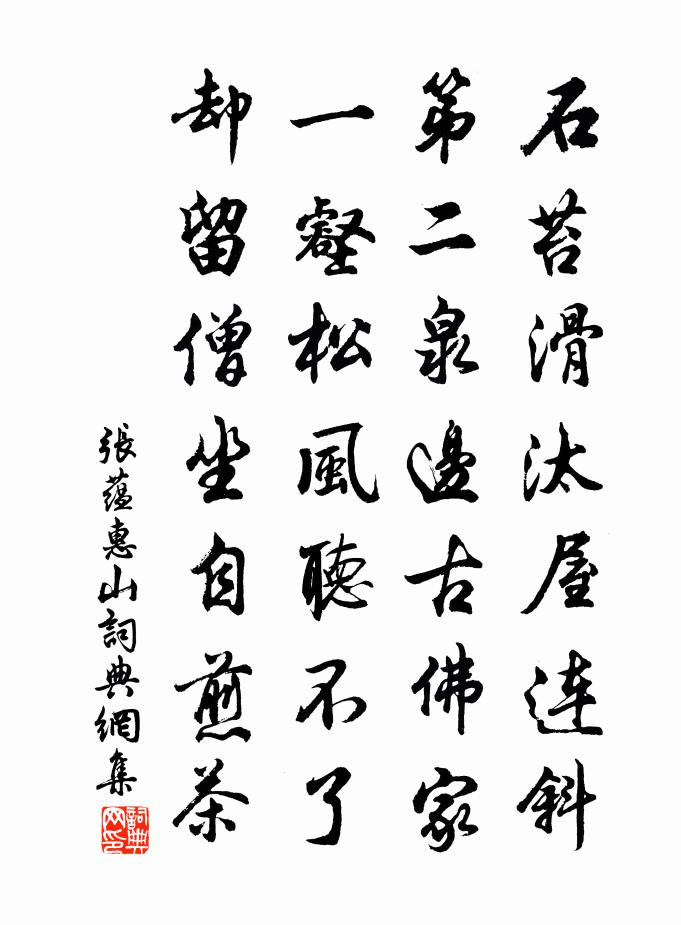 石苔滑汰屋連斜
第二泉邊古佛家
一壑松風聽不了
却留僧坐自煎茶
張蘊惠山詞典網集
詞典网印